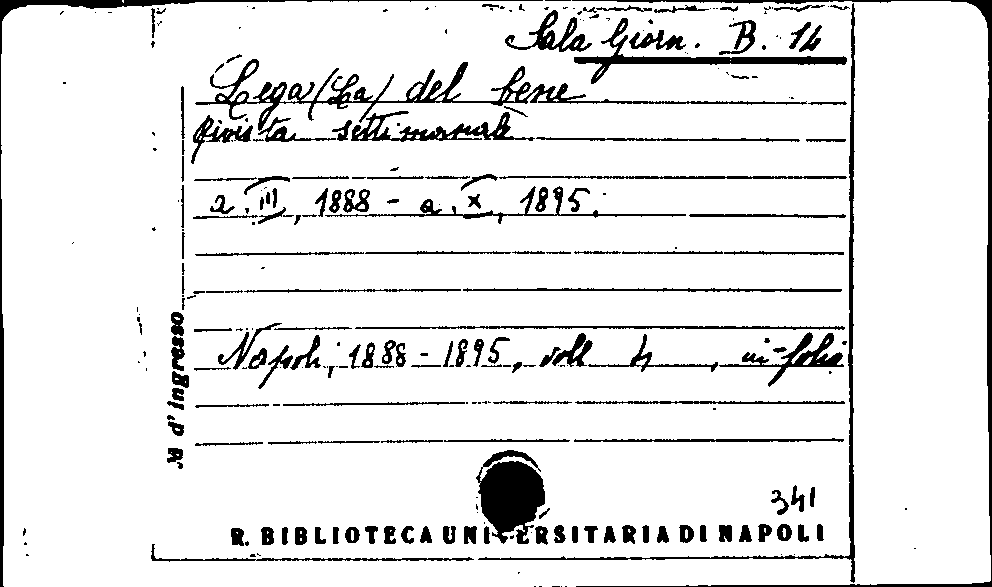 Sala Giorn. B. 14
Lega (La) del bene
Rivista settimanale
a. III, 1888 - a. X, 1895.
Napoli, 1888-1895, voll 4, in-folio
N d'ingresso
341
R. BIBLIOTECA UNIVERSITARIA DI NAPOLI